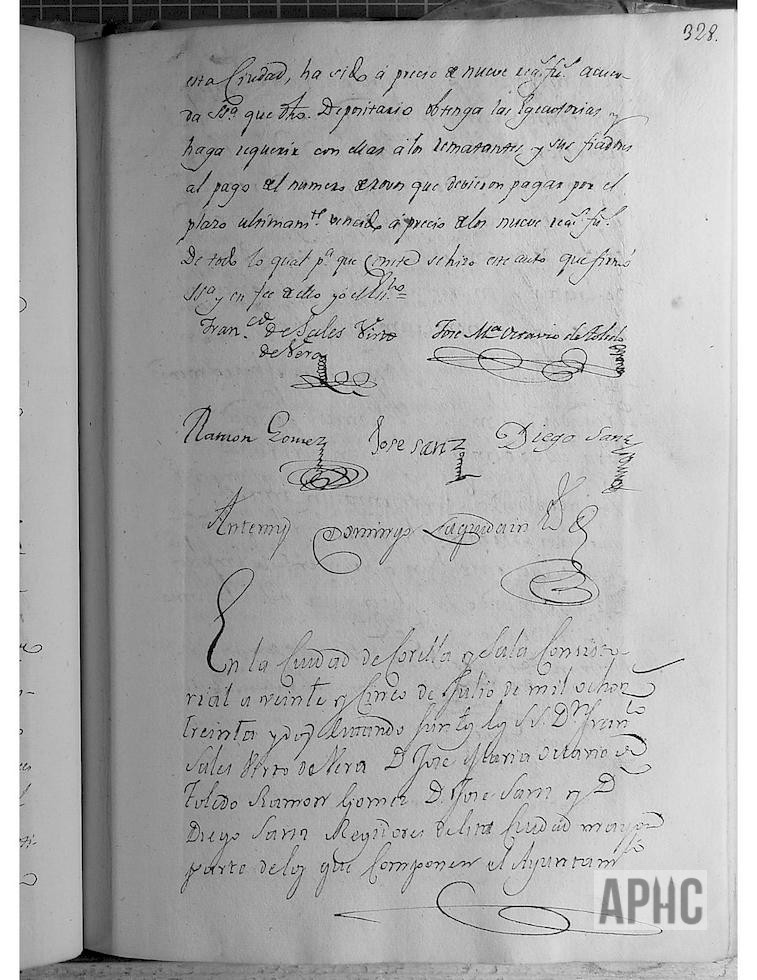 328.
esta Ciudad, ha sido á precio de nueve reas. fs. acuer-
da Sſa. que dho. Depositario obtenga las Egecutorias y
haga requerir con ellas á los rematantes, y sus fiadores
al pago del numero de rovos que devieron pagar por el
plazo ultimamte. vencido á precio de los nueve reas. fs.
De todo lo qual pa. que Conste se hizo este auto que firmó
Sſa. y en fee de ello yo el Ssno. =
Franco. de Sales Virto
de Vera
Jose Ma. Octavio de Toledo
Ramon Gomez
Jose Sanz
Diego Sanz
Antemi Domingo Laquidain
En la Ciudad de Corella y Sala Consisto-
rial a veinte y Cinco de Julio de mil ochozs.
treinta y dos estando juntos los SS. Dn. Franco.
Sales Virto de Vera D. Jose Maria Octavio de
Toledo Ramon Gomez D. Jose Sanz y D.
Diego Sanz Regidores de esta Ciudad mayor
parte de los que Componen el Ayuntamto.
APHC